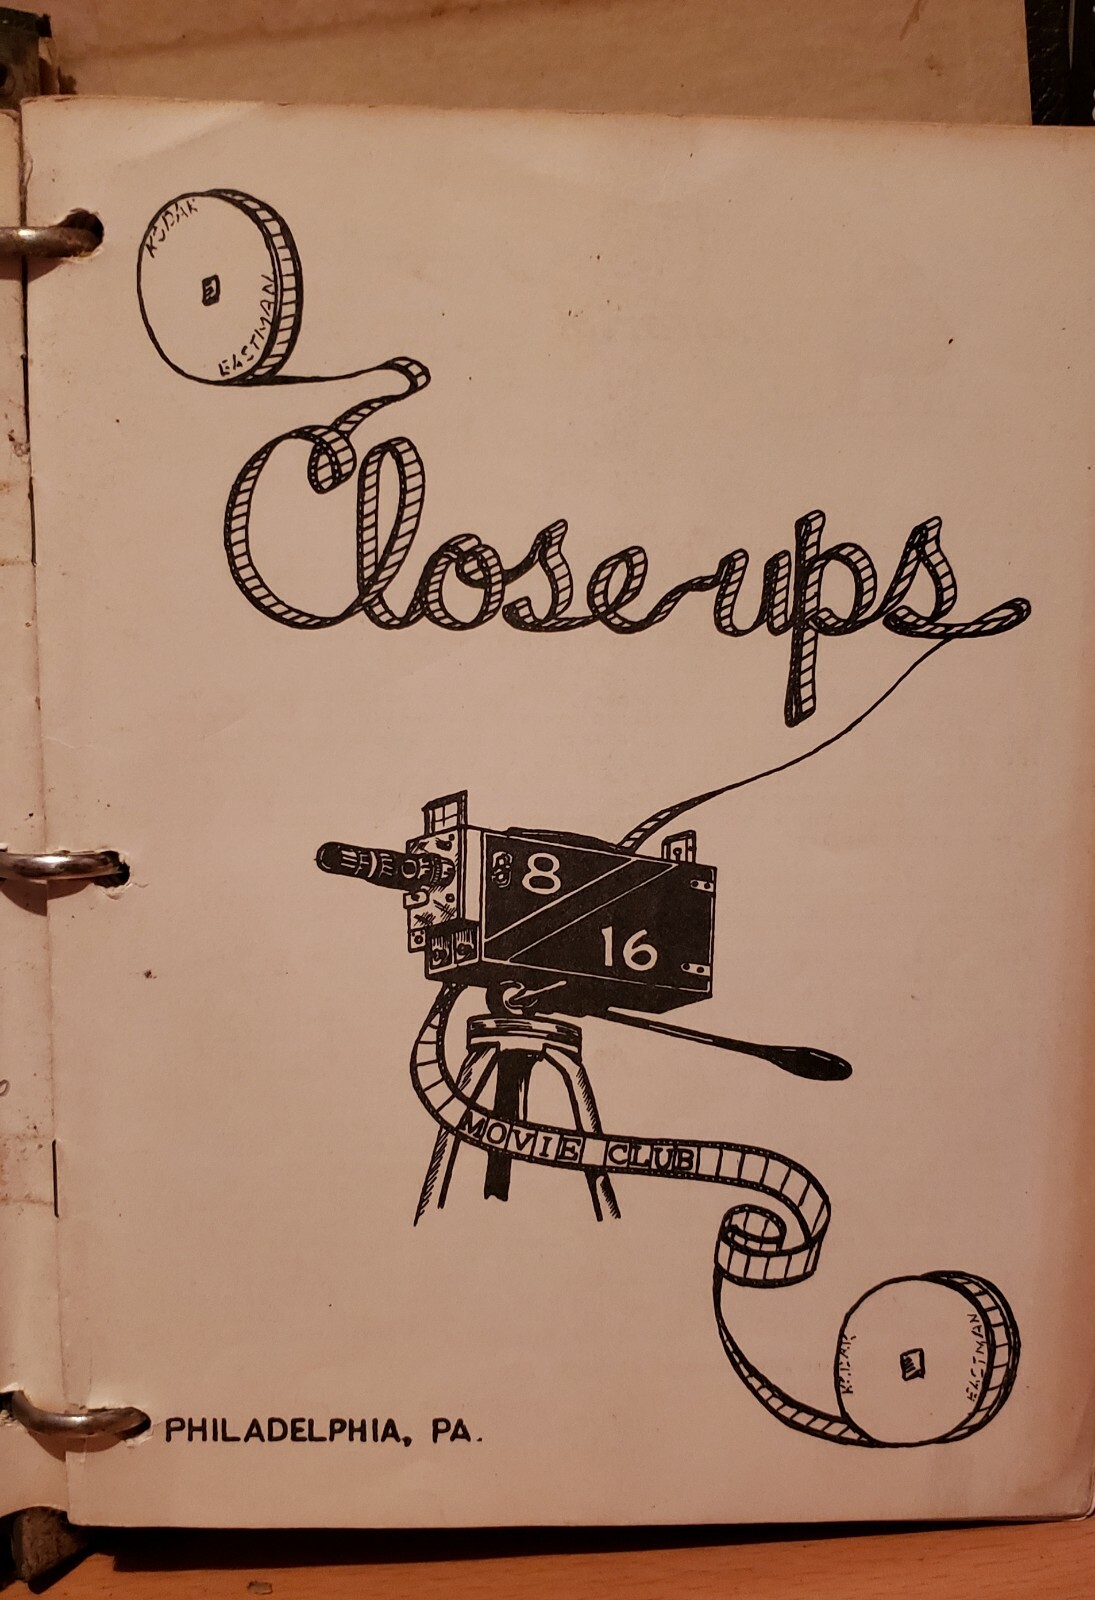 KODAK
EASTMAN
Close-ups
8
16
MOVIE CLUB
KODAK
EASTMAN
PHILADELPHIA, PA.